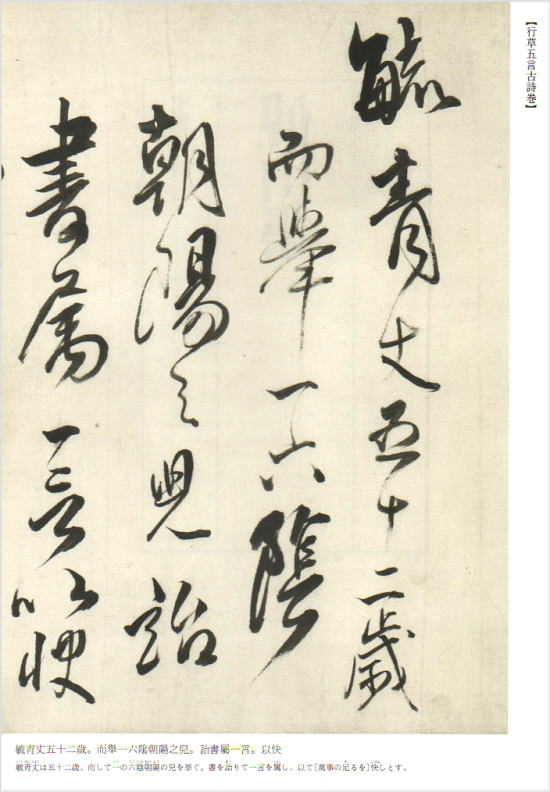 【行草五言古詩巻】
毓青丈五十二歲
而舉一六陰
朝陽之兒詒
書屬一言以快
毓青丈五十二歲。而舉一六陰朝陽之兒。詒書屬一言。以快
毓青丈は五十二歲、而して一の六陰朝陽の兒を挙ぐ。書を詒りて一言を属し、以て[萬事の足るを]快しとす、